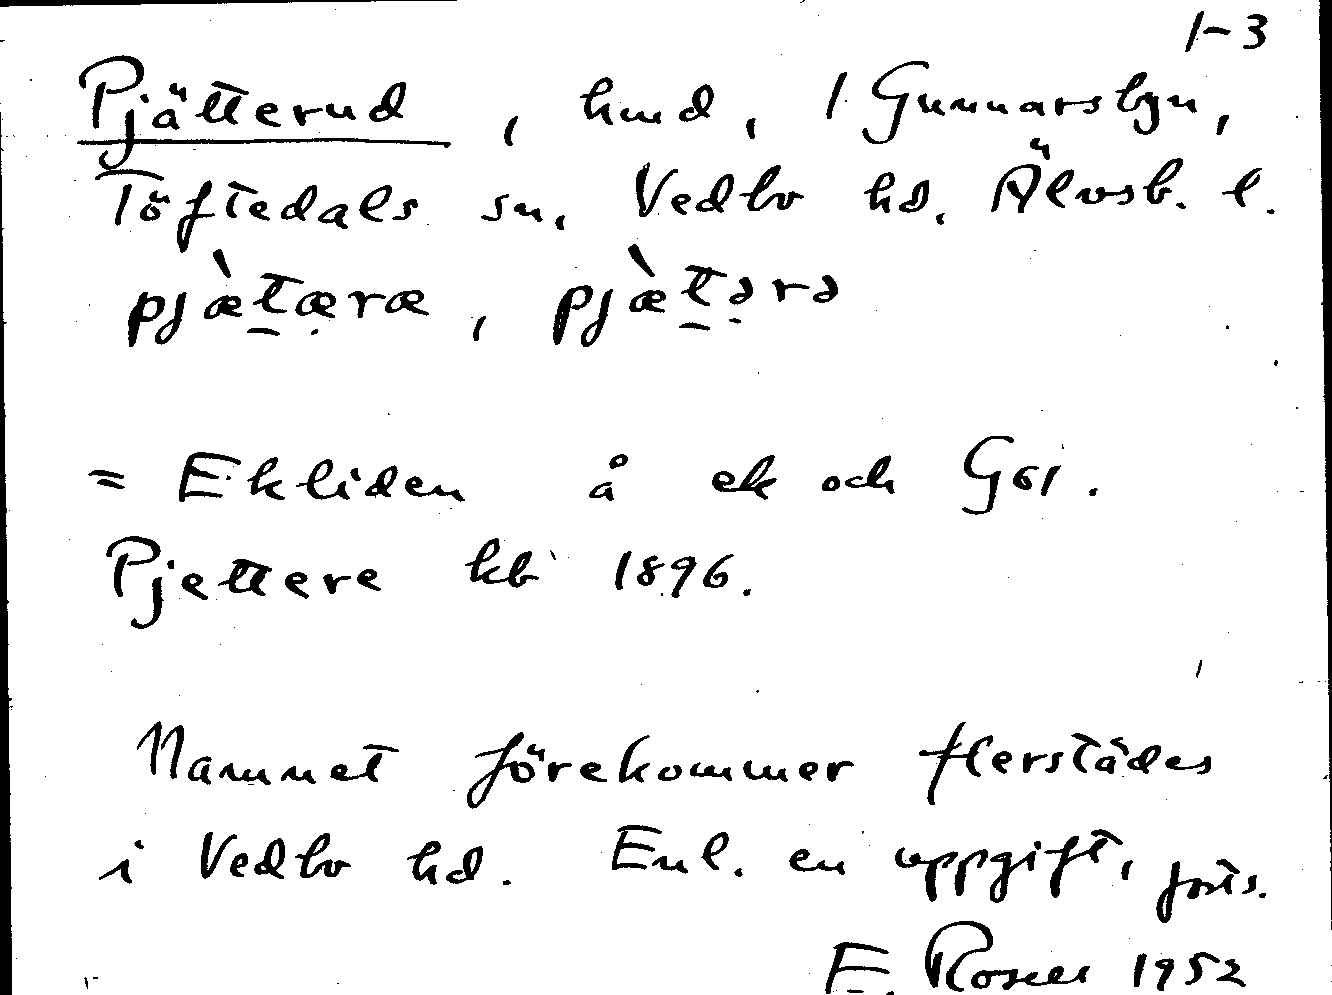 1-3
Pjätterud, hmd, 1 Gunnarsbyn,
Töftedals sn, Vedbo hd. Älvsb. l.
pjæ̀tæræ, pjæ̀tərə
= Ekliden å ek och G61.
Pjettere kb 1896.
Namnet förekommer flerstädes
i Vedbo hd. Enl. en uppgift, forts.
E. Rosell 1952